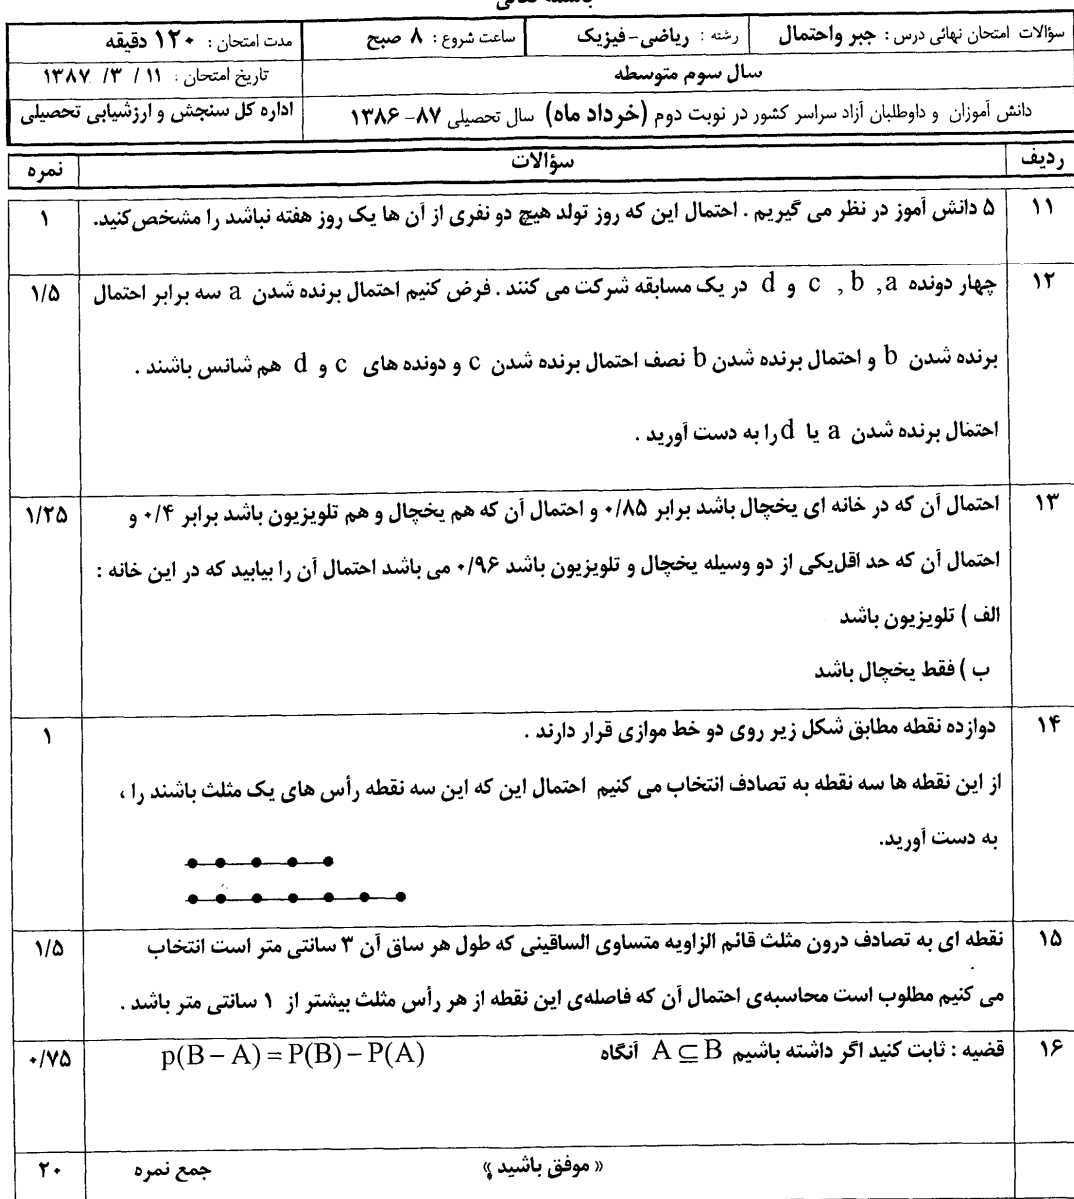 باسمه تعالی
سؤالات امتحان نهائی درس : جبر واحتمال رشته : ریاضی-فیزیک ساعت شروع : ۸ صبح مدت امتحان : ۱۲۰ دقیقه
سال سوم متوسطه تاریخ امتحان : ۱۱ / ۳ / ۱۳۸۷
دانش آموزان و داوطلبان آزاد سراسر کشور در نوبت دوم (خرداد ماه) سال تحصیلی ۸۷-۱۳۸۶ اداره کل سنجش و ارزشیابی تحصیلی
ردیف سؤالات نمره
۱۱ ۵ دانش آموز در نظر می گیریم . احتمال این که روز تولد هیچ دو نفری از آن ها یک روز هفته نباشد را مشخص کنید. ۱
۱۲ چهار دونده a , b , c و d در یک مسابقه شرکت می کنند . فرض کنیم احتمال برنده شدن a سه برابر احتمال ۱/۵
برنده شدن b و احتمال برنده شدن b نصف احتمال برنده شدن c و دونده های c و d هم شانس باشند .
احتمال برنده شدن a یا d را به دست آورید .
۱۳ احتمال آن که در خانه ای یخچال باشد برابر ۰/۸۵ و احتمال آن که هم یخچال و هم تلویزیون باشد برابر ۰/۴ و ۱/۲۵
احتمال آن که حد اقل یکی از دو وسیله یخچال و تلویزیون باشد ۰/۹۶ می باشد احتمال آن را بیابید که در این خانه :
الف ) تلویزیون باشد
ب ) فقط یخچال باشد
۱۴ دوازده نقطه مطابق شکل زیر روی دو خط موازی قرار دارند . ۱
از این نقطه ها سه نقطه به تصادف انتخاب می کنیم احتمال این که این سه نقطه رأس های یک مثلث باشند را ،
به دست آورید.
۱۵ نقطه ای به تصادف درون مثلث قائم الزاویه متساوی الساقینی که طول هر ساق آن ۳ سانتی متر است انتخاب ۱/۵
می کنیم مطلوب است محاسبه‌ی احتمال آن که فاصله‌ی این نقطه از هر رأس مثلث بیشتر از ۱ سانتی متر باشد .
۱۶ قضیه : ثابت کنید اگر داشته باشیم A ⊆ B آنگاه p(B − A) = P(B) − P(A) ۰/۷۵
« موفق باشید » جمع نمره ۲۰